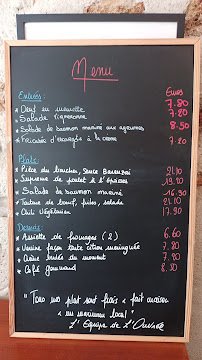 Menu
Entrées : Euros
* Oeuf en meurette 7.80
* Salade Vigneronne 7.20
* Salade de saumon mariné aux agrumes 8.50
* Fricassée d'escargots à la crème 7.20
Plats :
* Pièce du boucher, sauce 21.10
* Suprême de poulet à l'époisses 19.20
* Salade de saumon mariné 16.90
* Tartare de boeuf, frites, salade 21.10
* Chili Végétarien 17.90
Desserts :
* Assiette de fromages (2) 6.60
* Verrine façon tarte citron meringuée 7.80
* Crème brûlée du moment 7.80
* Café gourmand 8.50
"Tous nos plats sont frais & fait maison
& au maximum local"
L'Équipe de L'